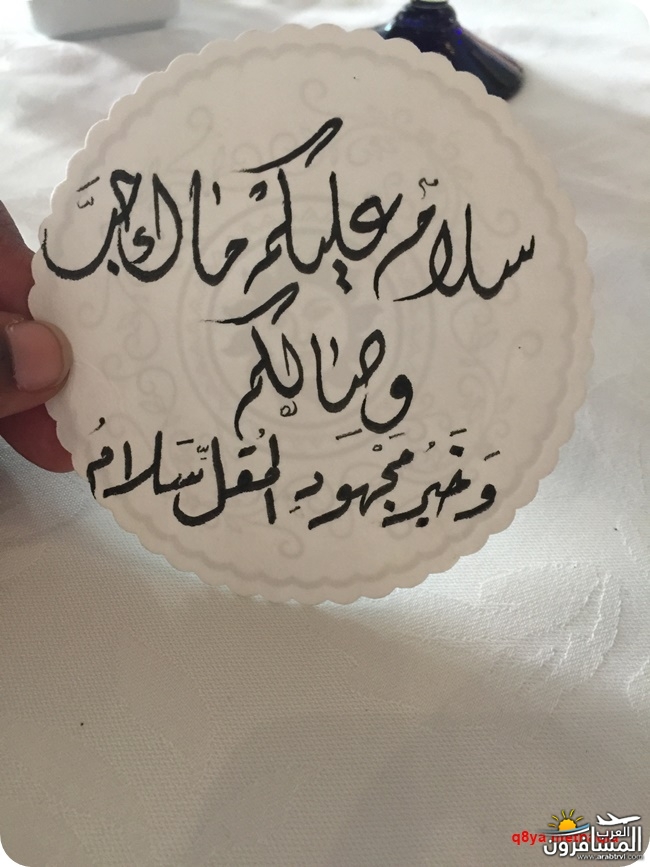 سلامٌ عليكم ما احبَّ
وصالكم
وَخَيرُ مَجْهَودِ المُقلِّ سَلامُ
q8ya
العرب
المسافرون
www.arabtrvl.com